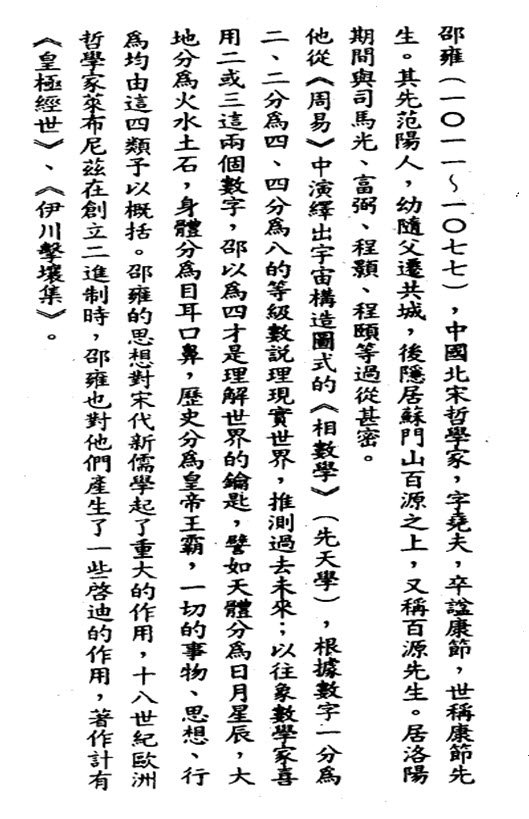 邵雍（一〇一一～一〇七七），中國北宋哲學家，字堯夫，卒諡康節，世稱康節先
生。其先范陽人，幼隨父遷共城，後隱居蘇門山百源之上，又稱百源先生。居洛陽
期間與司馬光、富弼、程顥、程頤等過從甚密。
他從《周易》中演繹出宇宙構造圖式的《相數學》（先天學），根據數字一分為
二、二分為四、四分為八的等級數說理現實世界，推測過去未來；以往象數學家喜
用二或三這兩個數字，邵以為四才是理解世界的鑰匙，譬如天體分為日月星辰，大
地分為火水土石，身體分為目耳口鼻，歷史分為皇帝王霸，一切的事物、思想、行
為均由這四類予以概括。邵雍的思想對宋代新儒學起了重大的作用，十八世紀歐洲
哲學家萊布尼茲在創立二進制時，邵雍也對他們產生了一些啓迪的作用，著作計有
《皇極經世》、《伊川擊壤集》。